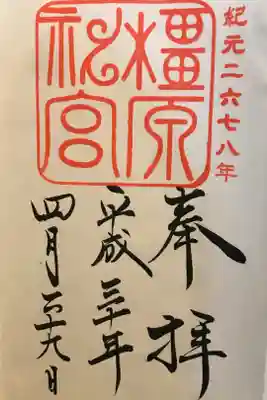 紀元二六七八年
橿原神宮
奉拝
平成三十年
四月二十九日